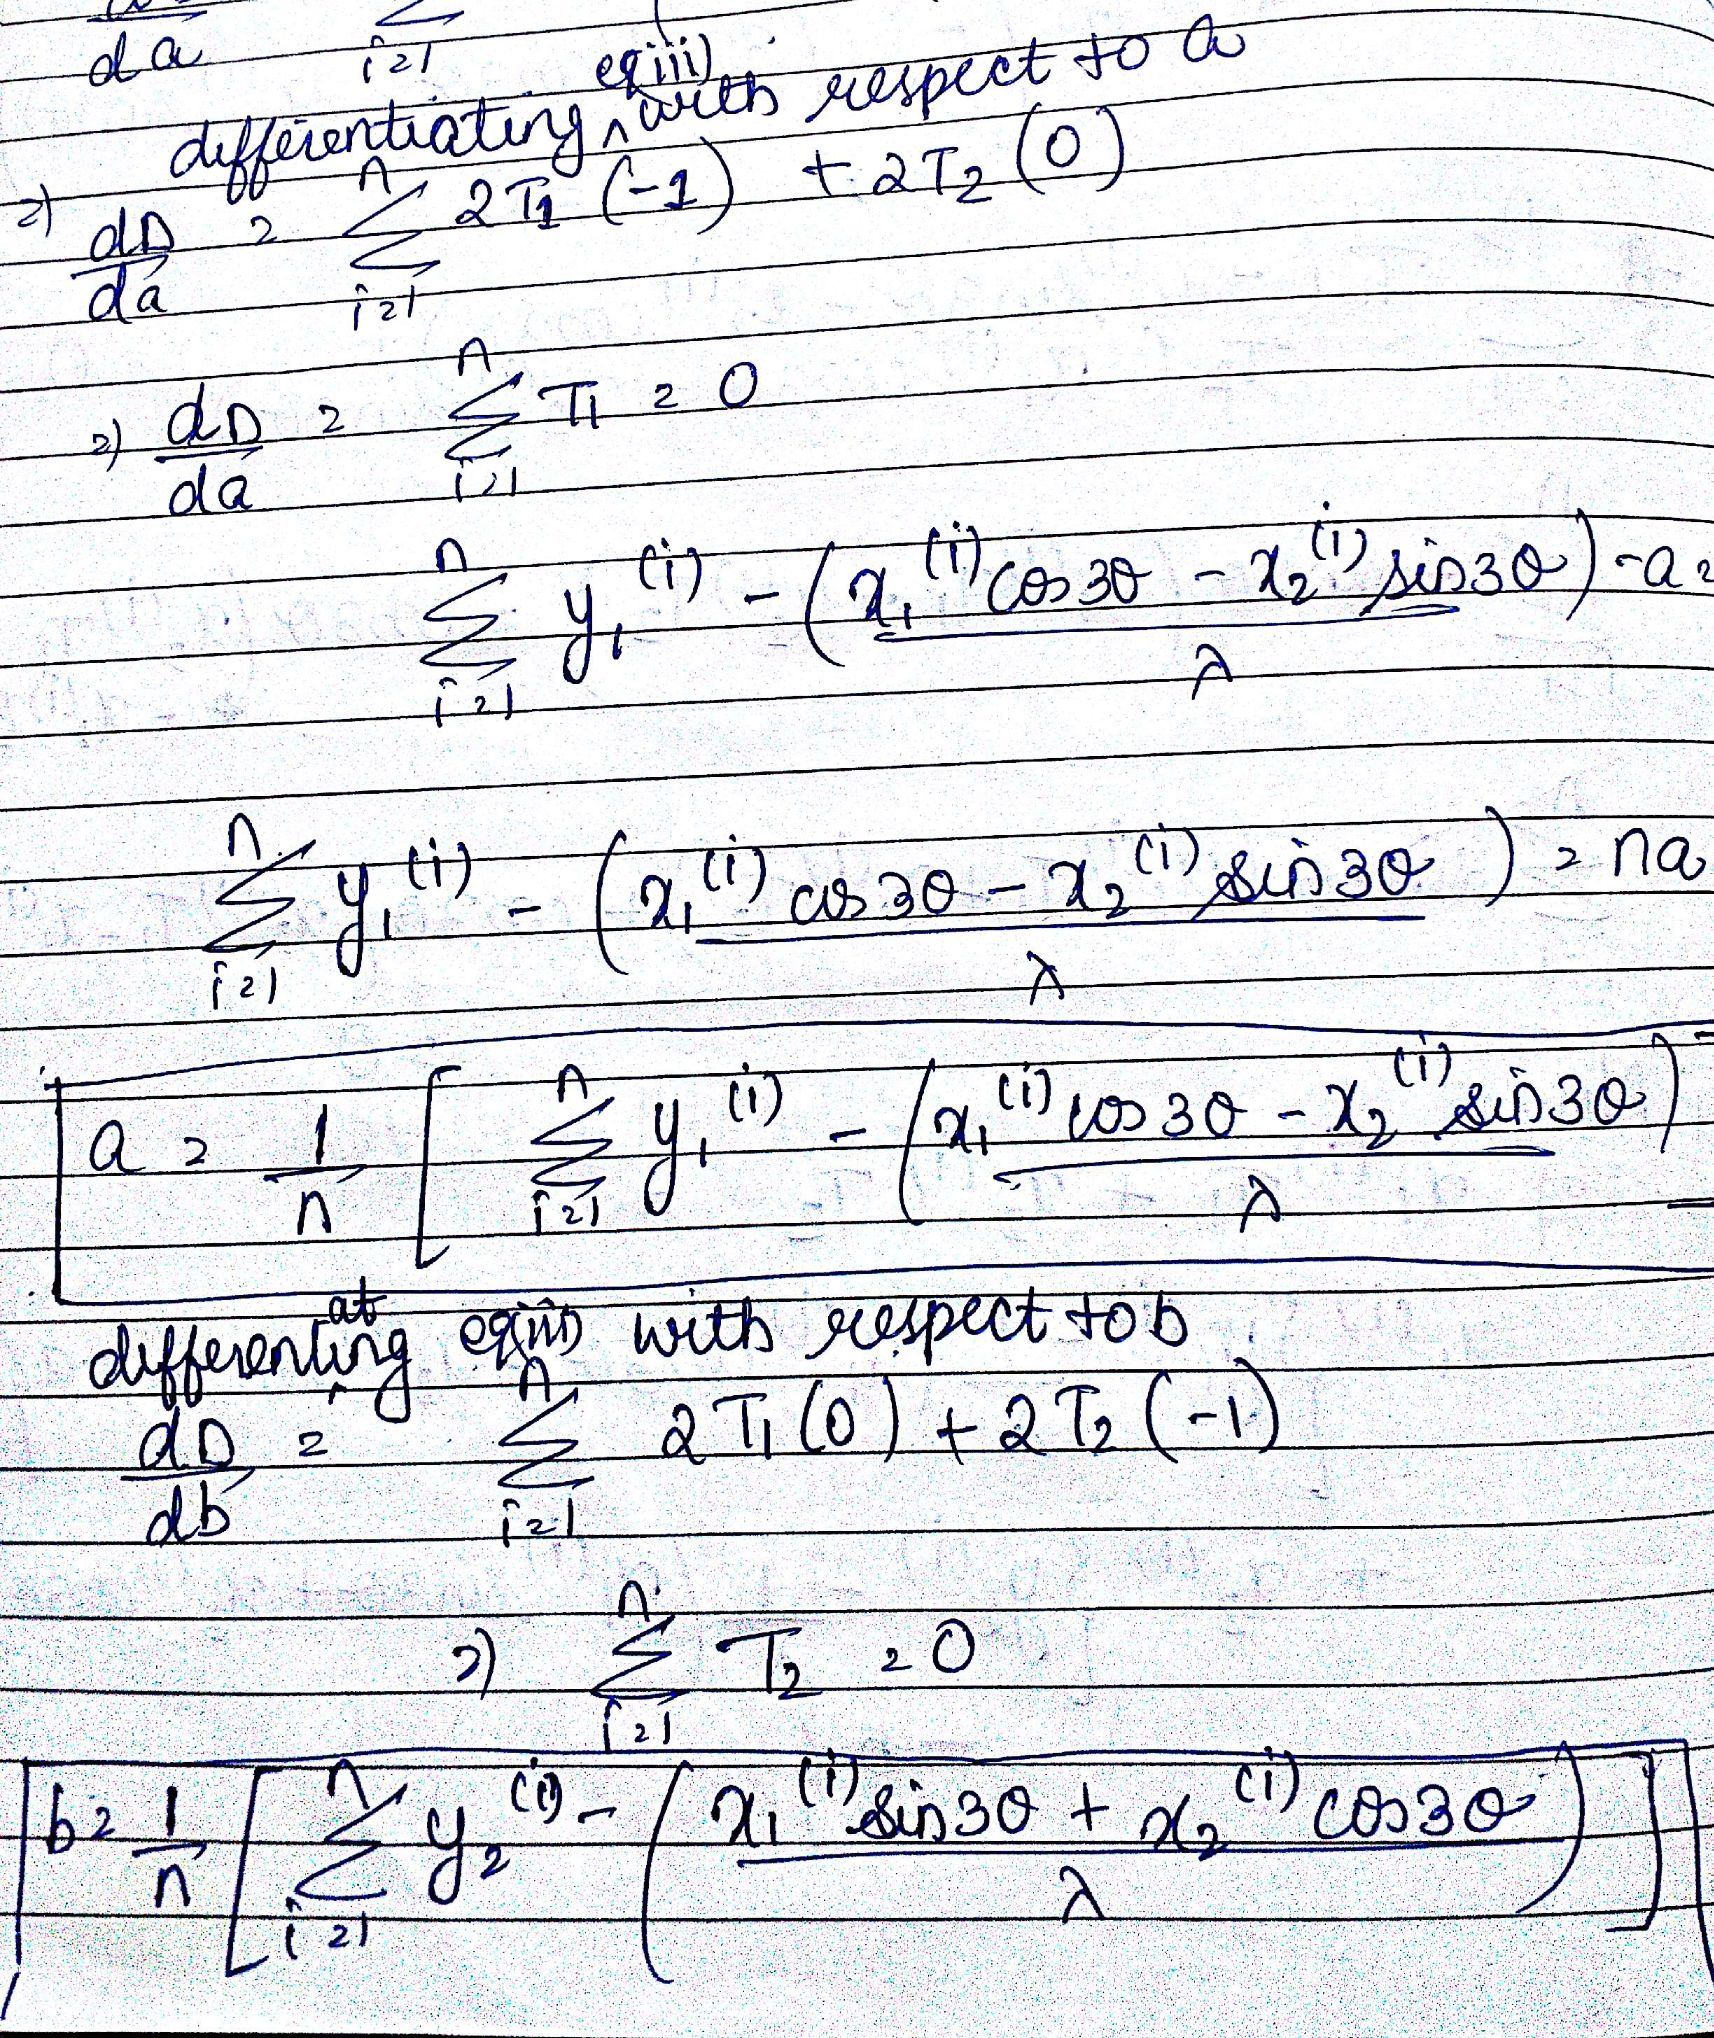 da i=1
differentiating eqiii) with respect to a
=) dD/da = n Σ i=1 2T1 (-1) + 2T2 (0)
=) dD/da = n Σ i=1 T1 = 0
n Σ i=1 y1^(i) - (x1^(i) cos3θ - x2^(i) sin3θ / λ) - a =
n Σ i=1 y1^(i) - (x1^(i) cos3θ - x2^(i) sin3θ / λ) = na
a = 1/n [ n Σ i=1 y1^(i) - (x1^(i) cos3θ - x2^(i) sin3θ / λ)
differentating eqiii) with respect to b
dD/db = n Σ i=1 2T1 (0) + 2T2 (-1)
=) n Σ i=1 T2 = 0
b = 1/n [ n Σ i=1 y2^(i) - (x1^(i) sin3θ + x2^(i) cos3θ / λ) ]